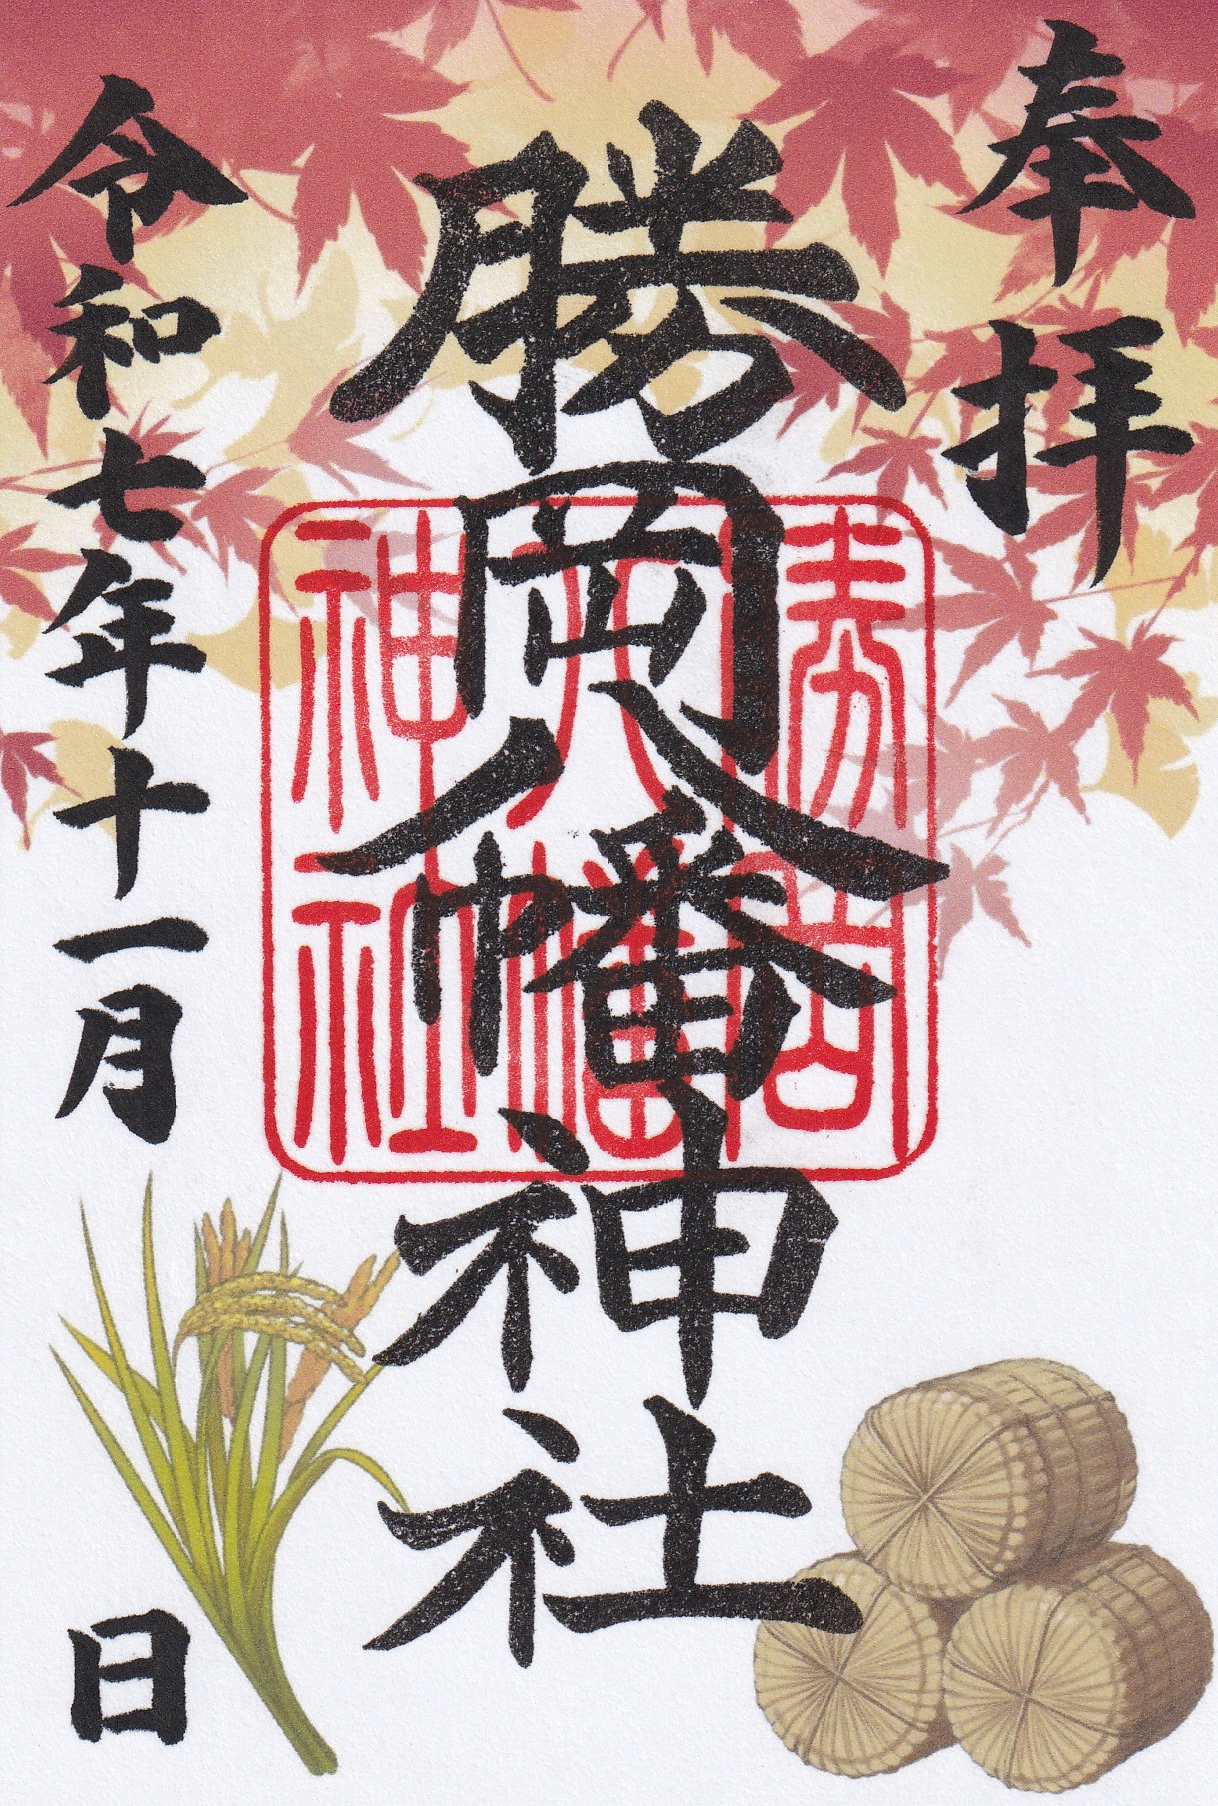 奉拝
勝岡八幡神社
勝岡
八幡
神社
令和七年十一月 日